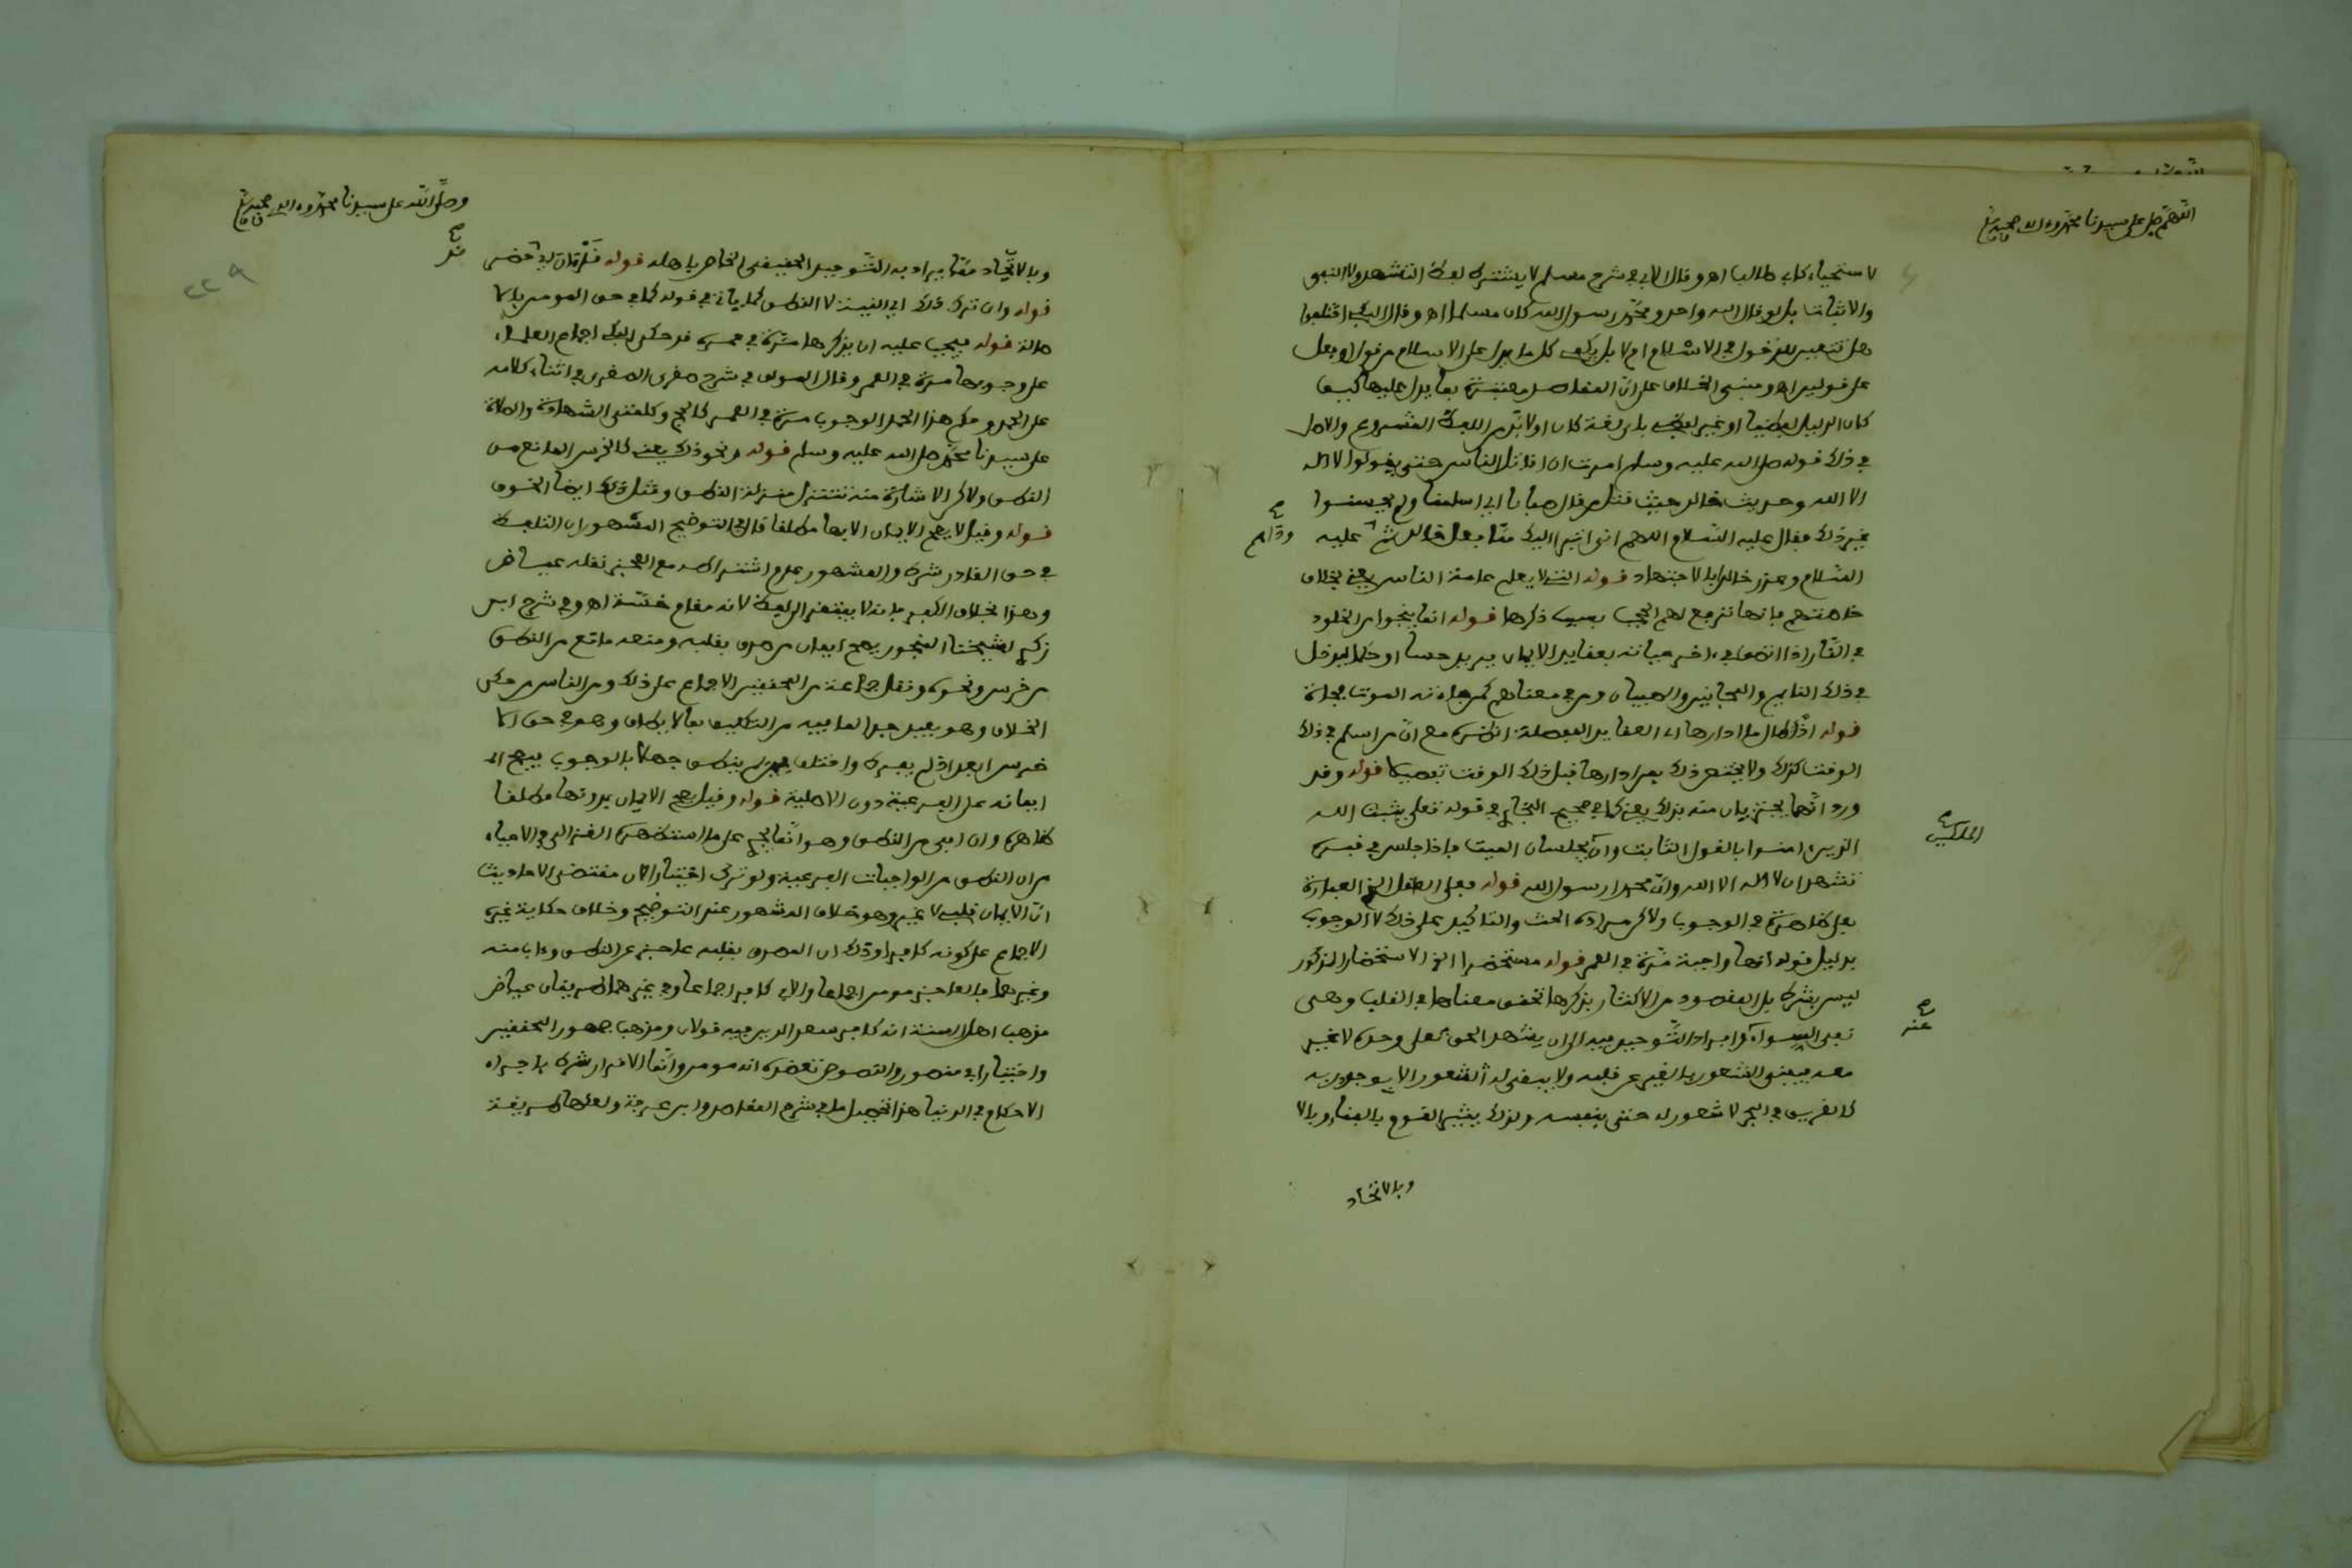 اللهم صل على سيدنا محمد وءاله وصحبه
لاستحياء كاب طالب اهـ وقال الابي في شرح مسلم لا يشترط لفظ التشهد ولا النفي
والاثبات بل لو قال الله واحد ومحمد رسول الله كان مسلما اهـ وقال السبكي اختلفوا
هل تتعين للدخول في الاسلام ام لا بل يكفي كل ما يدل على الاسلام من قول او فعل
على قولين اهـ ومبنى الخلاف على ان المقاصد معتبرة بما يدل عليها كيف
كان الدليل لفظيا او غير لفظي باي لغة كان او لا بد من اللفظ المشروع والاصل
في ذلك قوله صلى الله عليه وسلم امرت ان اقاتل الناس حتى يقولوا لا اله
الا الله وحديث خالد حيث قتل من قال صبانا اي اسلمنا ولم يحسنوا
غير ذلك فقال عليه السلام اللهم اني ابرا اليك مما فعل خالد ثم عليه
وداهم
السلام وعذر خالدا بالاجتهاد قوله التي لا يعلم عامة الناس يعني بخلاف
خاصتهم فانها ترفع لهم الحجب بسبب ذكرها قوله انما ينجوا من الخلود
في النار اذا اتصف في ءاخر حياته بعقايد الايمان يريد حسا او حكما ليدخل
في ذلك النايم والمجانين والصبيان ومن في معناهم كمن جاءته الموت فجاة
قوله اذ كمال ما ادارها اي العقايد المفصلة الكثيرة مع ان من اسلم في ذلك
الوقت كذلك ولا يختص ذلك بمن ادارها قبل ذلك الوقت تفصيلا قوله وقد
ورد انهما يجتزيان منه بذلك يعني كما في صحيح البخاري في قوله تعلى يثبت الله
الملكين
الذين ءامنوا بالقول الثابت وانه يجلسان الميت فاذا جلس في قبره
تشهد ان لا اله الا الله وان محمدا رسول الله قوله فعلى العاقل الخ العبارة
بعلى ظاهرة في الوجوب ولاكن مراده الحث والتاكيد على ذلك لا الوجوب
بدليل قوله انها واجبة مرة في العمر قوله مستحضرا الخ الاستحضار المذكور
ليس بشرط بل المقصود من الاكثار بذكرها تحقق معناها في القلب وهي
عنه
نفي السوا وافراد التوحيد فيه الى ان يشهد الحق تعلى وحده لا غير
معه فينبغي الشعور بالغير عن قلبه ولا يبقى له الشعور الا بوجود ربه
كالغريق في البحر لا شعور له حتى بنفسه ولذلك يشير القوم بالفناء وبالا
وبالاتحاد
وصلى الله على سيدنا محمد وءاله وصحبه
٢٢٩
وبالاتحاد مما يراد به التوحيد الحقيقي الخاص باهله قوله
قوله وان ترك ذلك اي النية لا النطق كما ياتي في قوله كما في حق المومن بالا
صالة قوله فيجب عليه ان يذكرها مرة في عمره قد حكى السبكي اجماع العلماء
على وجوبها مرة في العمر وقال المولف في شرح صغرى الصغرى في اثناء كلامه
على الحمد وحكم هذا الحمد الوجوب مرة في العمر كالحج وكلمتي الشهادة والصلاة
على سيدنا محمد صلى الله عليه وسلم قوله ونحو ذلك يعني كالخرس المانع من
النطق ولاكن الاشارة منه تتنزل منزلة النطق ومثل ذلك ايضا الخوف
قوله وقيل لا يصح الايمان الا بها مطلقا قال في التوضيح المشهور ان التلفظ
في حق القادر شرط والمشهور عدم اشتراطه مع العجز نقله عياض
وهذا بخلاف الكفر فانه لا يفتقر الى لفظ لانه مقام خسة اهـ وفي شرح ابن
زكري لشيخنا المنجور يصح ايمان من صدق بقلبه ومنعه مانع من النطق
من خرس ونحوه ونقل جماعة من المحققين الاجماع على ذلك ومن الناس من حكى
الخلاف وهو بعيد جدا لما فيه من التكليف بما لا يطاق وهو في حق الا
خرس ابعد اذ لم يقصره واختلف فيمن لم ينطق جهلا بالوجوب فيصح الـ
ايمانه على الفرعية دون الاصلية قوله وقيل يصح الايمان بدونها مطلقا
ظاهره وان ابى من النطق وهو انما يجي على ما استظهره الغزالي في الاحياء
من ان النطق من الواجبات الفرعية ولو ترك اختيارا لان مقتضى الاحاديث
ان الايمان قلبي لا غير وهو خلاف المشهور عند التوضيح وخلاف حكاية غيره
الاجماع على كونه كافرا وذلك ان المصدق بقلبه عاجز عن النطق وءاب منه
وغيرهما فالعاجز مومن اجماعا والابي كافر اجماعا وفي غيرهما طريقان عياض
مذهب اهل السنة انه كافر سعد الدين فيه قولان ومذهب جمهور المحققين
واختيار ابي منصور والنصوص تعضده انه مومن وانما الاقرار شرط باجراء
الاحكام في الدنيا هذا تحصيل ما في شرح المقاصد وابن عرفة ولعلها طريقة